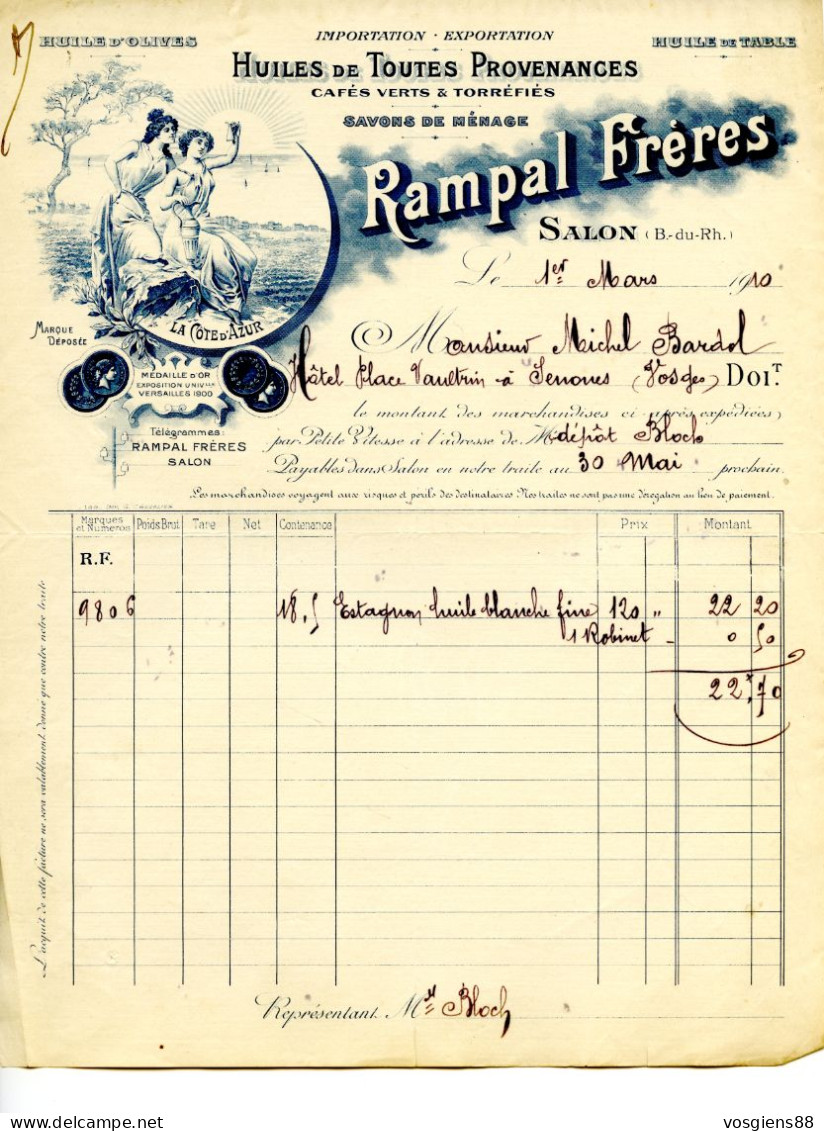 HUILE D'OLIVES
IMPORTATION · EXPORTATION
HUILE DE TABLE
HUILES DE TOUTES PROVENANCES
CAFÉS VERTS & TORRÉFIÉS
SAVONS DE MÉNAGE
Rampal Frères
SALON (B.-du-Rh.)
Le 1er Mars 1910
LA CÔTE D'AZUR
MARQUE DÉPOSÉE
MÉDAILLE D'OR
EXPOSITION UNIVlle
VERSAILLES 1900
Télégrammes:
RAMPAL FRÈRES
SALON
Monsieur Michel Bardol
Hôtel Place Vaultrin à Senones (Vosges) DOIT
le montant des marchandises ci après expédiées,
par Petite Vitesse à l'adresse de M dépôt Bloch
Payables dans Salon en notre traite au 30 Mai prochain.
Les marchandises voyagent aux risques et périls des destinataires Nos traites ne sont pas une dérogation au lieu de paiement.
Marques et Numéros Poids Brut Tare Net Contenance Prix Montant
R.F.
9806 18,5 Estagnon huile blanche fine 120 " 22 20
1 Robinet - 0 50
22 70
L'acquit de cette facture ne sera valablement donné que contre notre traite
Représentant M Bloch
vosgiens88